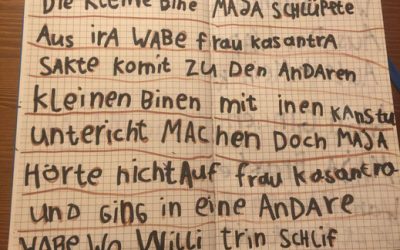 Die kleine Bine MAJA SCHLÜPfte
Aus irA WABe frau kasantrA
SAkte komit zu Den AnDAren
kleinen Binen mit inen KAnstu
untericht MACHen Doch MAJA
Hörte nicht Auf frau kasantra
unD GinG in eine AnDAre
WABe Wo Willi trin SCHLif